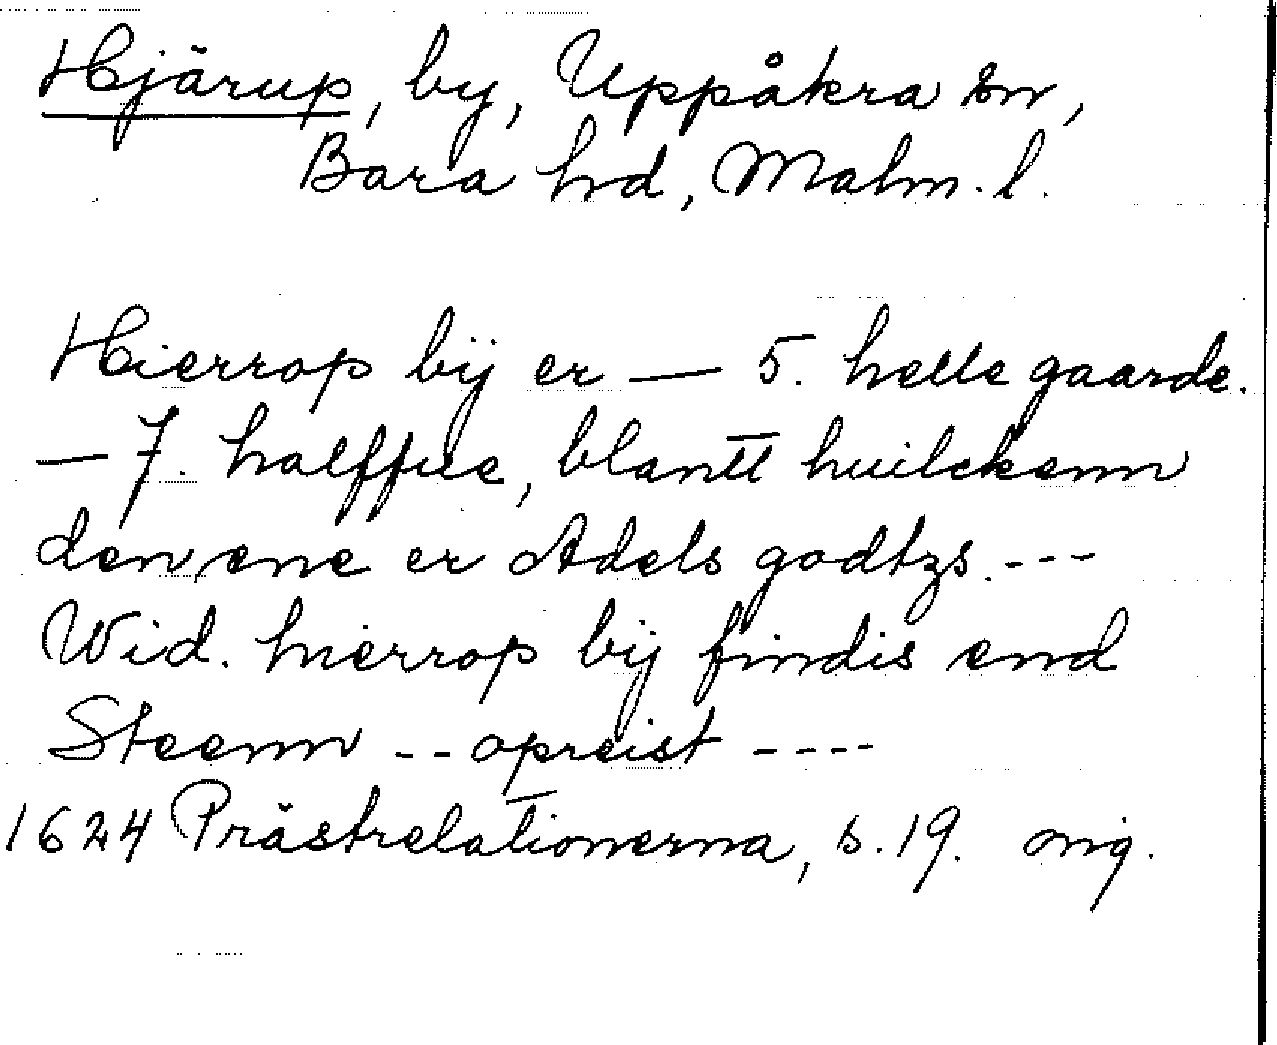 Hjärup, by, Uppåkra sn,
Bara hd, Malm. l.
Hierrop bÿ er — 5. helle gaarde.
— 7. halffue, blantt huilckenn
den ene er Adels godtzs. ---
Wid. hierrop bÿ findis end
Steenn -- opreist ----
1624 Prästrelationerna, s. 19. orig.